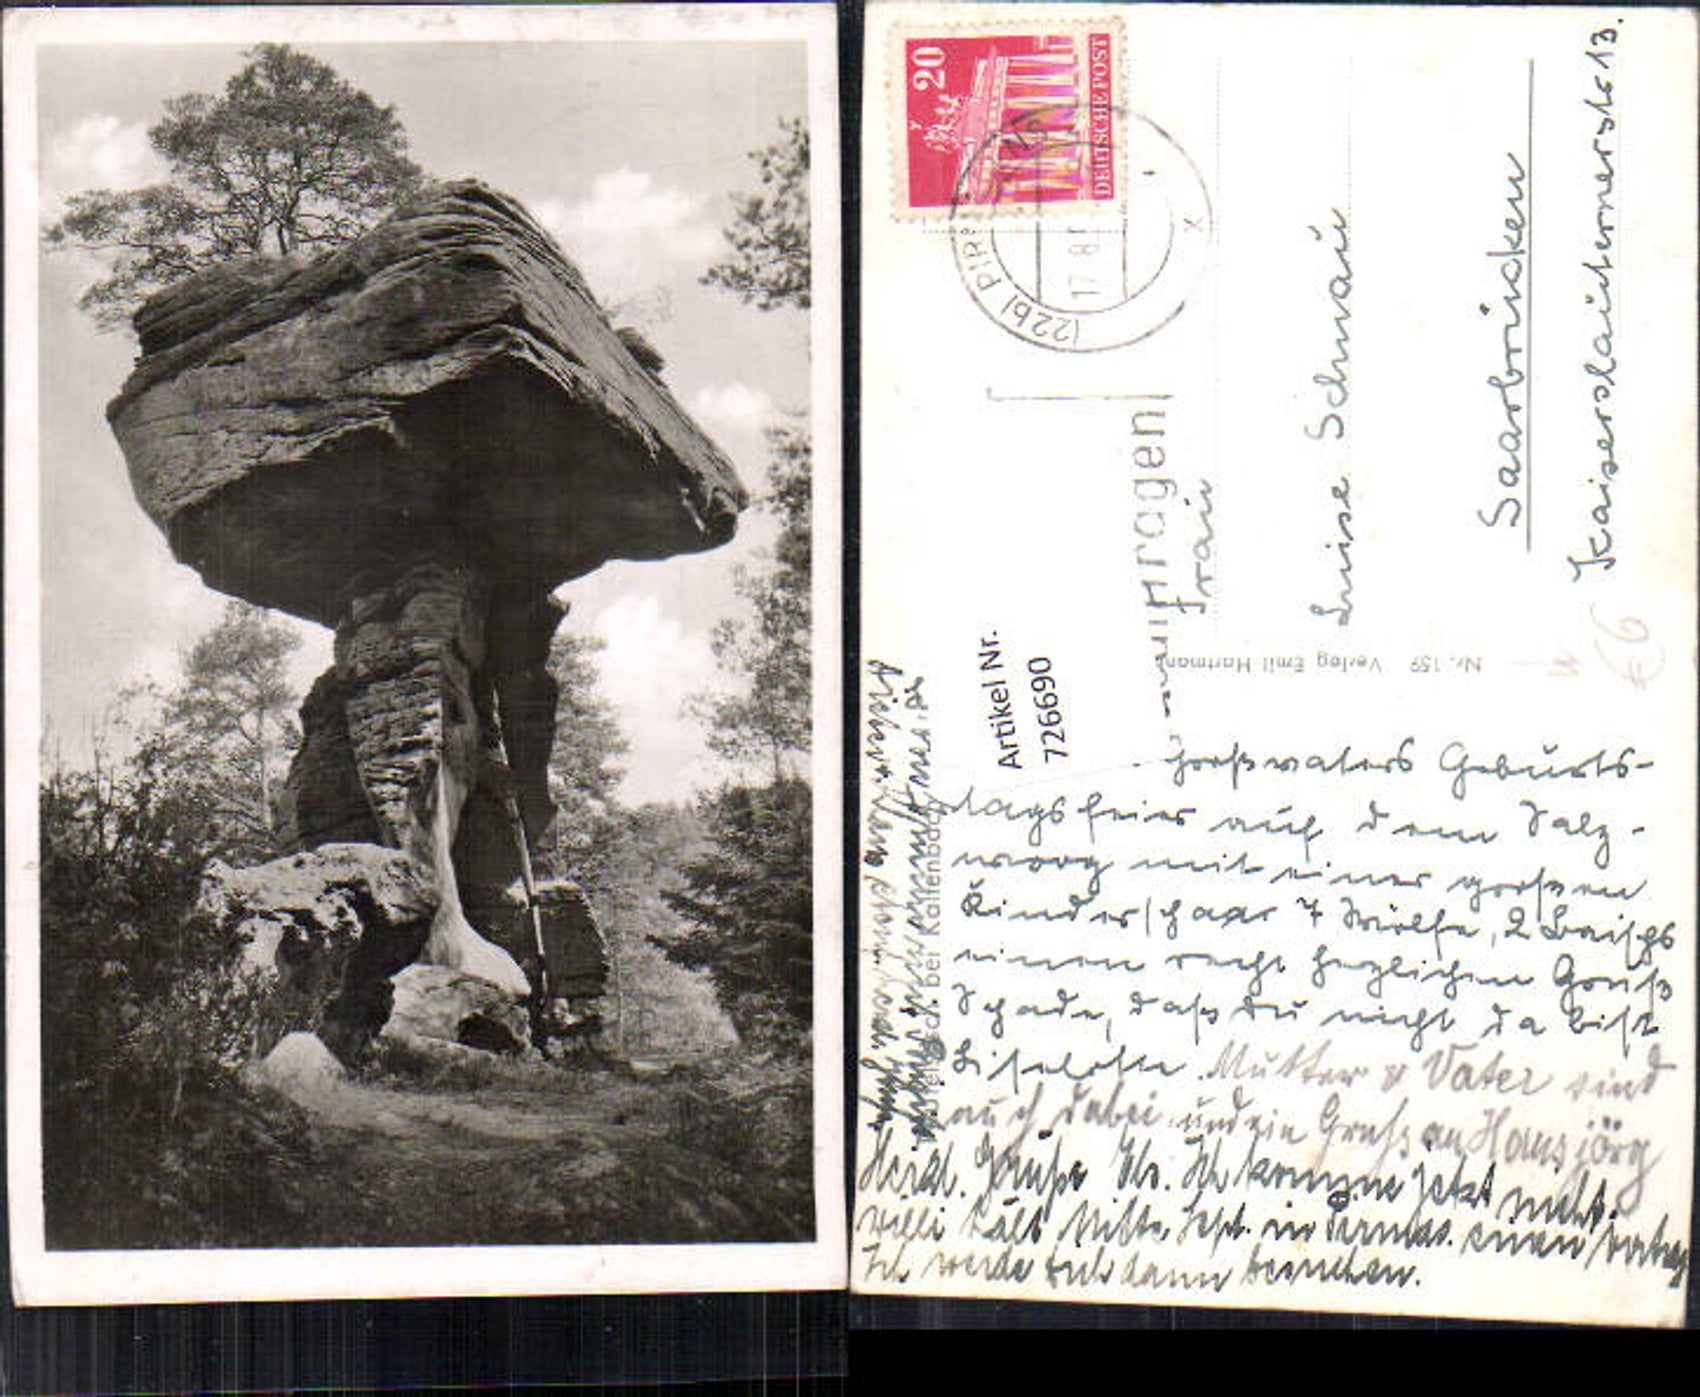 20
DEUTSCHE POST
(22b) PIR
NS
17.8
x
anfragen
Frau
Luise Schwau
Saarbrücken
Kaiserslauternerstr 13.
Artikel Nr.
726690
Nr. 159 Verlag Emil Hartmann
€6
bei Kaltenbach
Großvaters Geburts-
tagsfeier auf dem Salz-
woog mit einer großen
Kinderschaar 7 Wölfe, 2
einen recht herzlichen Gruß
Schade, daß Du nicht da bist
Liselotte. Mutter u Vater sind
auch dabei und ein Gruß an Hansjörg
Herzl. Grüße Ich komme jetzt nicht.
Willi hält Mitte Sept. in Pirmas. einen Vortrag
Ich werde Euch dann besuchen.